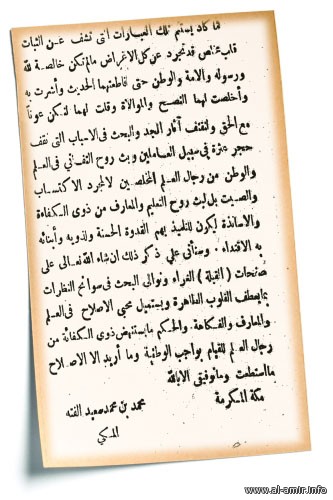 لما كاد يستتم تلك العبارات التى تشف عن الثبات
قلب مخلص قد تجرد عن كل الاغراض مالم تكن خالصة لله
ورسوله والامة والوطن حتى قاطعتهما الحديث وأشرت به
وأخلصت لهما النصح والموالاة وقلت لهما لنكن عونا
مع الحق ولنقتف آثار الجد والبحث فى الاسباب التى تقف
حجر عثرة فى سبيل العاملين وبث روح التفانى فى العلم
والوطن من رجال العلم المخلصين لا لمجرد الاكتساب
والصيت بل لبث روح التعليم والمعارف من ذوى الكفاءة
والاساتذة ليكون للتلميذ بهم القدوة الحسنة ولذويه وأبنائه
به الاقتداء . وسنأتى على ذكر ذلك ان شاء الله تعالى على
صفحات ( القبلة ) الغراء ونوالى البحث فى سوانح النظرات
بما يعطف القلوب الطاهرة ويستميل محبى الاصلاح فى العلم
والمعارف والفكاهة . والحكم بما يستنهض ذوى الكفائة من
رجال العلم للقيام بواجب الوطنية وما أريد الا الاصلاح
ما استطعت وما توفيقى الا بالله
مكة المكرمة
محمد بن محمد سعيد الفته
المكي
www.al-amir.info